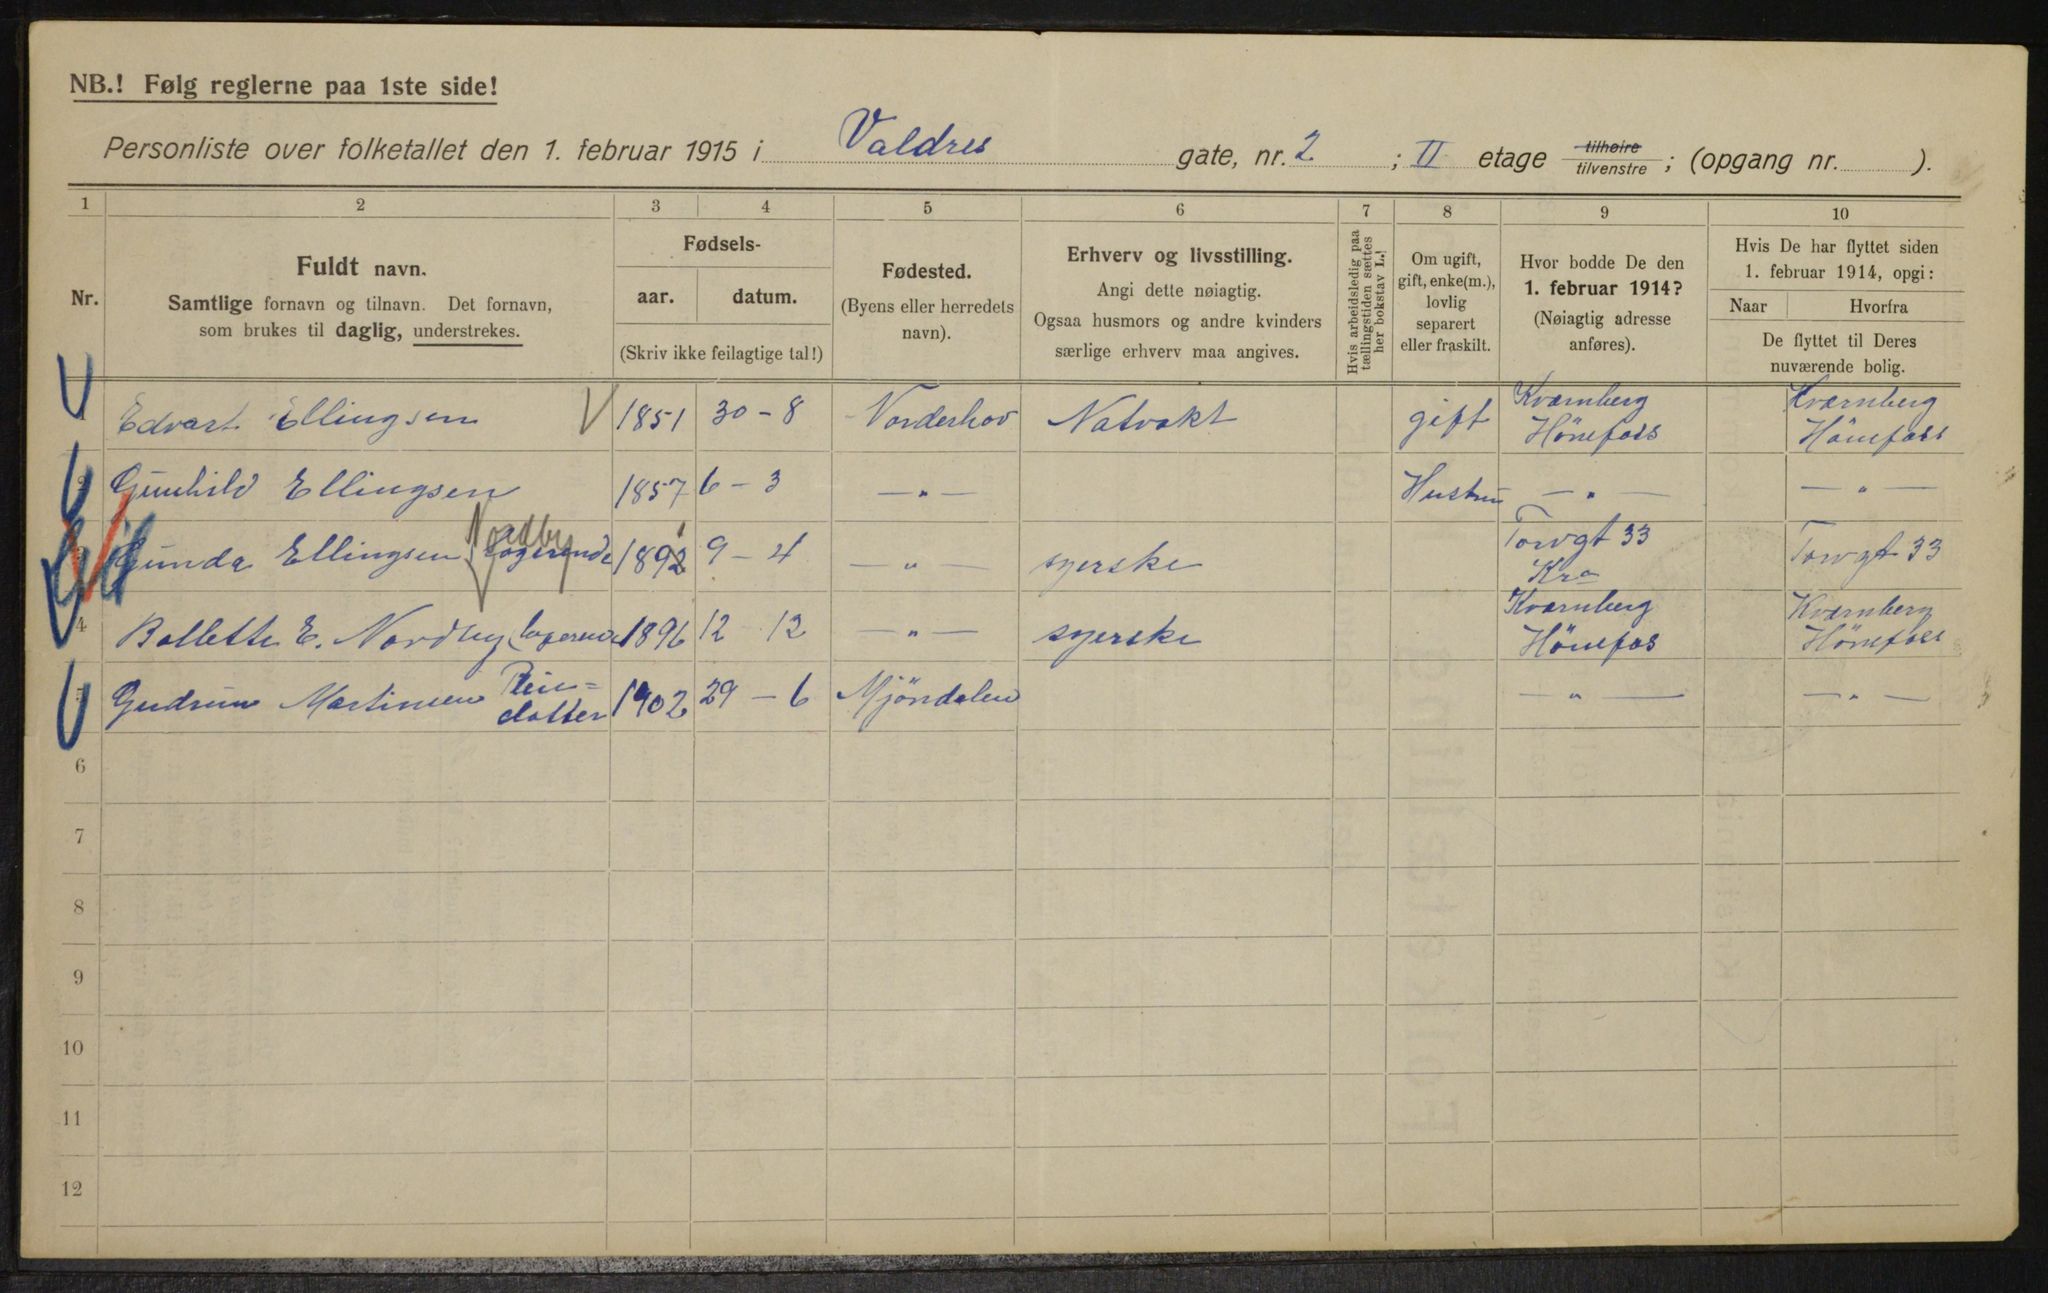 NB.! Følg reglerne paa 1ste side!
Personliste over folketallet den 1. februar 1915 i Valdres gate, nr. 2 ; II etage tilhøire tilvenstre ; (opgang nr. ).
1 2 3 4 5 6 7 8 9 10
Nr.
Fuldt navn.
Samtlige fornavn og tilnavn. Det fornavn,
som brukes til daglig, understrekes.
Fødsels-
aar. datum.
(Skriv ikke feilagtige tal!)
Fødested.
(Byens eller herredets
navn).
Erhverv og livsstilling.
Angi dette nøiagtig.
Ogsaa husmors og andre kvinders
særlige erhverv maa angives.
Hvis arbeidsledig paa
tællingstiden sættes
her bokstav L.!
Om ugift,
gift, enke(m.),
lovlig
separert
eller fraskilt.
Hvor bodde De den
1. februar 1914?
(Nøiagtig adresse
anføres).
Hvis De har flyttet siden
1. februar 1914, opgi:
Naar Hvorfra
De flyttet til Deres
nuværende bolig.
Edvart Ellingsen 1851 30-8 Norderhov Natvakt gift Kværnberg Hönefoss Kværnberg Hönefoss
2 Gunhild Ellingsen 1857 6-3 -"- Hustru -"- -"-
Nordby
3 Gunda Ellingsen logerende 1892 9-4 -"- syerske Torvgt 33 Kra Torvgt 33
4 Bollette E. Nordby logerende 1896 12-12 -"- syerske Kværnberg Hönefos Kværnberg Hönefoss
5 Gudrun Martinsen Pleie=
datter 1902 29-6 Mjöndalen -"- -"-
6
7
8
9
10
11
12